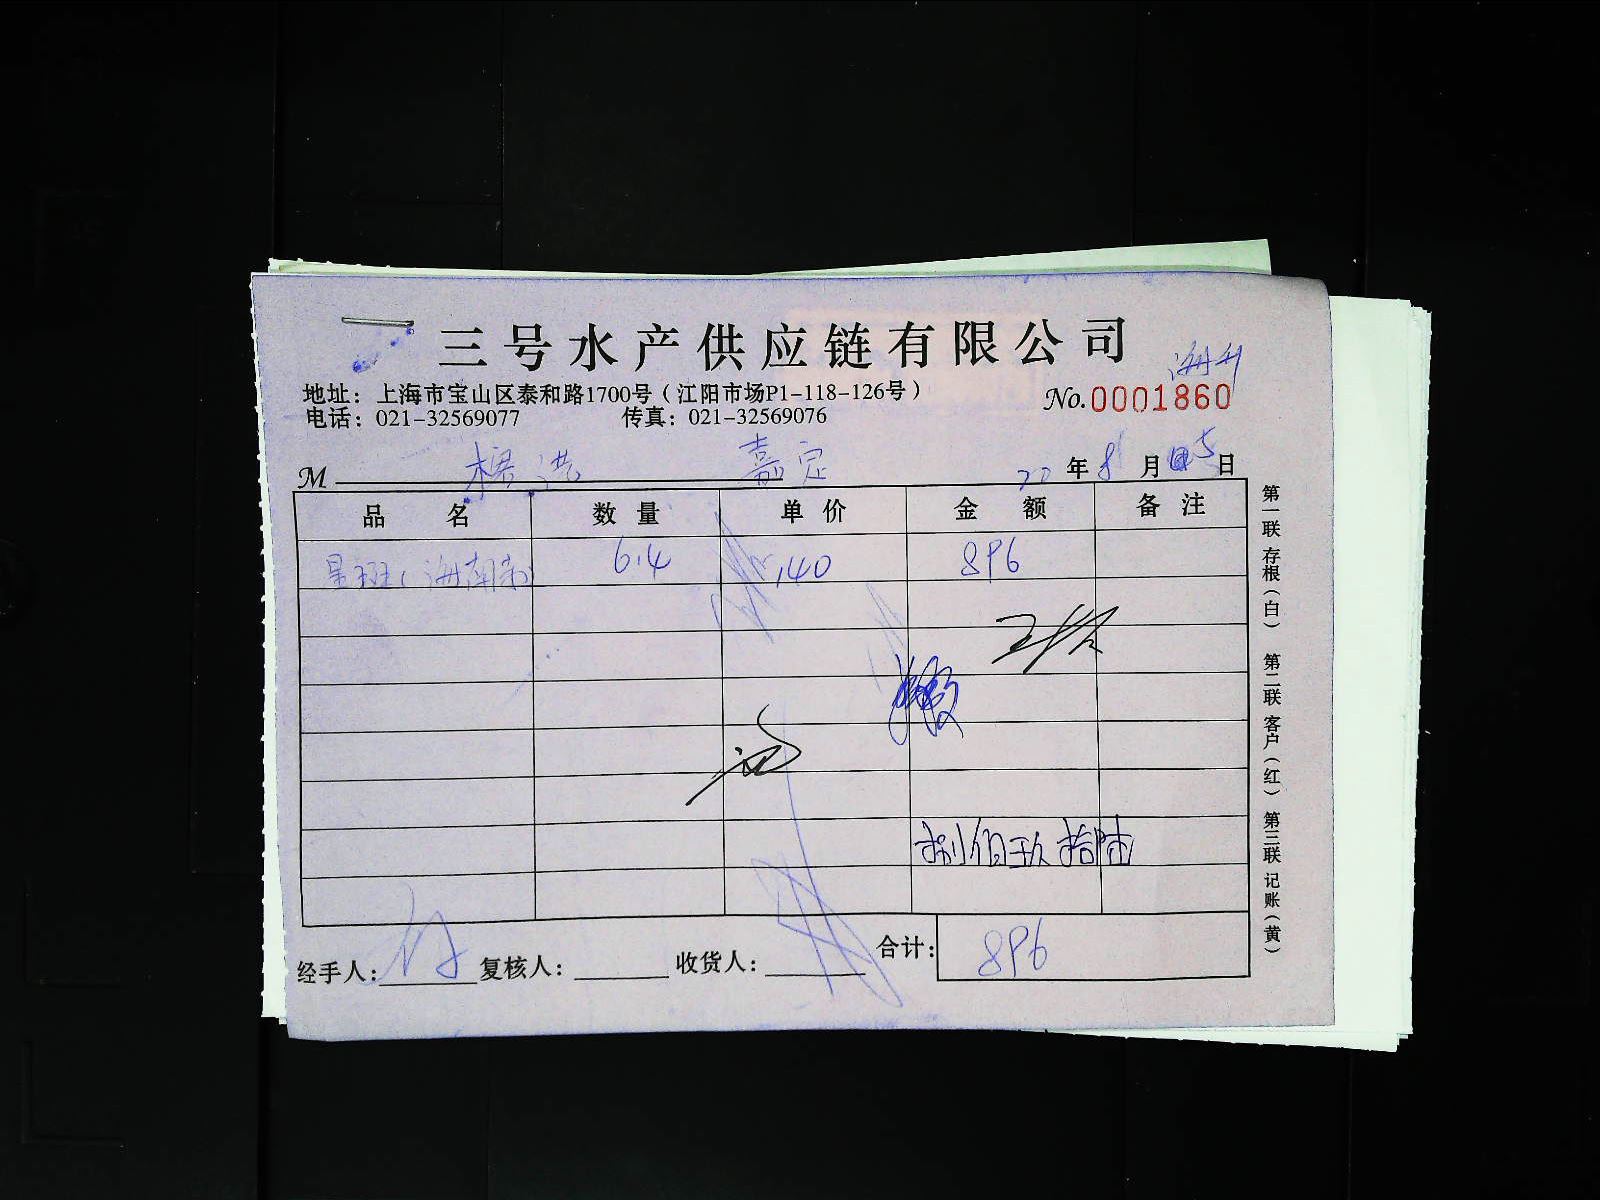 三号水产供应链有限公司
地址：上海市宝山区泰和路1700号（江阳市场P1-118-126号）
No.0001860
电话：021-32569077 传真：021-32569076
M 嘉定 20年8月5日
品名 数量 单价 金额 备注
星斑（海南 6.4 140 896
捌佰玖拾陆
经手人： 复核人： 收货人： 合计：896
第一联存根（白） 第二联客户（红） 第三联记账（黄）